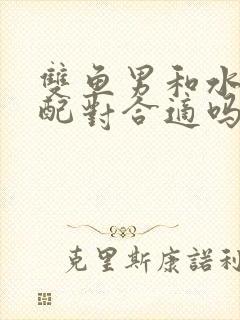 雙鱼男和水
配對合適吗
克里斯康諾利